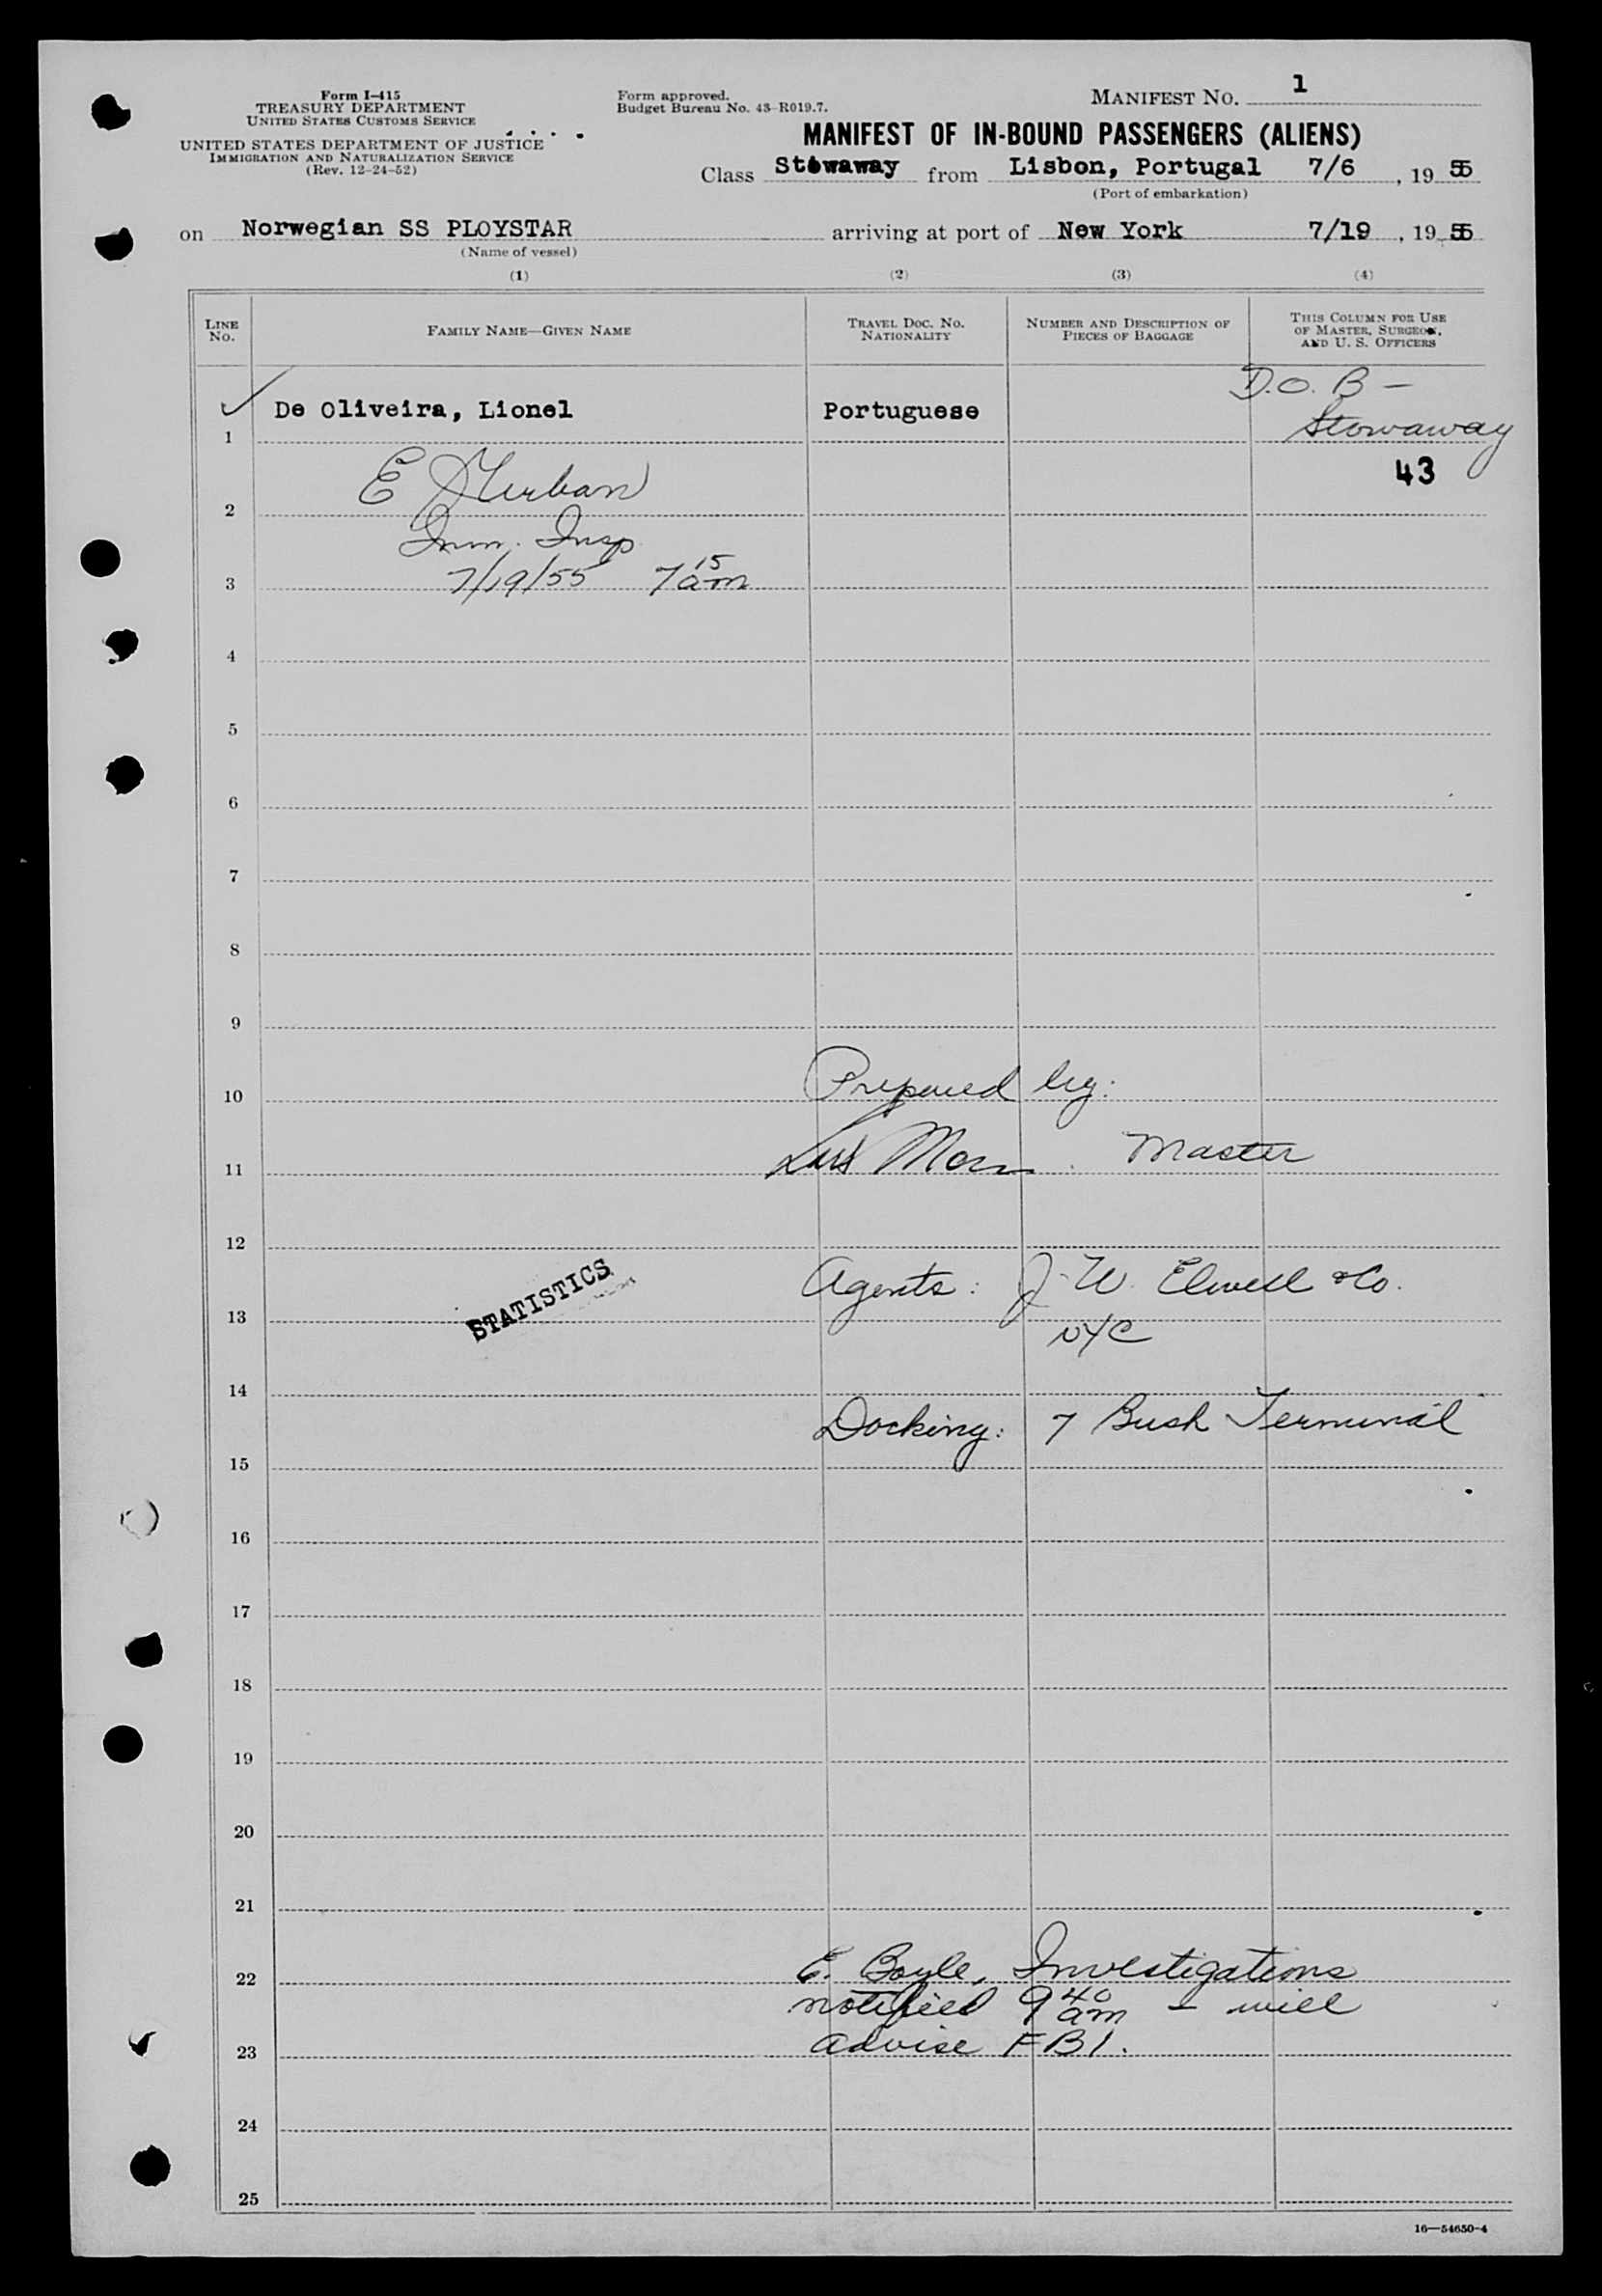 Form I-415
TREASURY DEPARTMENT
UNITED STATES CUSTOMS SERVICE
UNITED STATES DEPARTMENT OF JUSTICE
IMMIGRATION AND NATURALIZATION SERVICE
(Rev. 12-24-52)
Form approved.
Budget Bureau No. 43-R019.7.
MANIFEST NO. 1
MANIFEST OF IN-BOUND PASSENGERS (ALIENS)
Class Stowaway from Lisbon, Portugal 7/6, 1955
(Port of embarkation)
on Norwegian SS PLOYSTAR arriving at port of New York 7/19, 1955
(Name of vessel)
(1) (2) (3) (4)
LINE NO. FAMILY NAME—GIVEN NAME TRAVEL DOC. NO. NATIONALITY NUMBER AND DESCRIPTION OF PIECES OF BAGGAGE THIS COLUMN FOR USE OF MASTER, SURGEON, AND U. S. OFFICERS
D.O.B —
1 De Oliveira, Lionel Portuguese Stowaway
43
2 E
Imm. Insp.
3 7/19/55 7 15 am
4
5
6
7
8
9
10 Prepared by:
11 Master
12
Agents: J. W. Elwell & Co.
13 STATISTICS
NYC
14
Docking: 7 Bush Terminal
15
16
17
18
19
20
21
22 E. Boyle, Investigations
notified 9 40 am - will
23 advise FBI.
24
25
16—54650-4